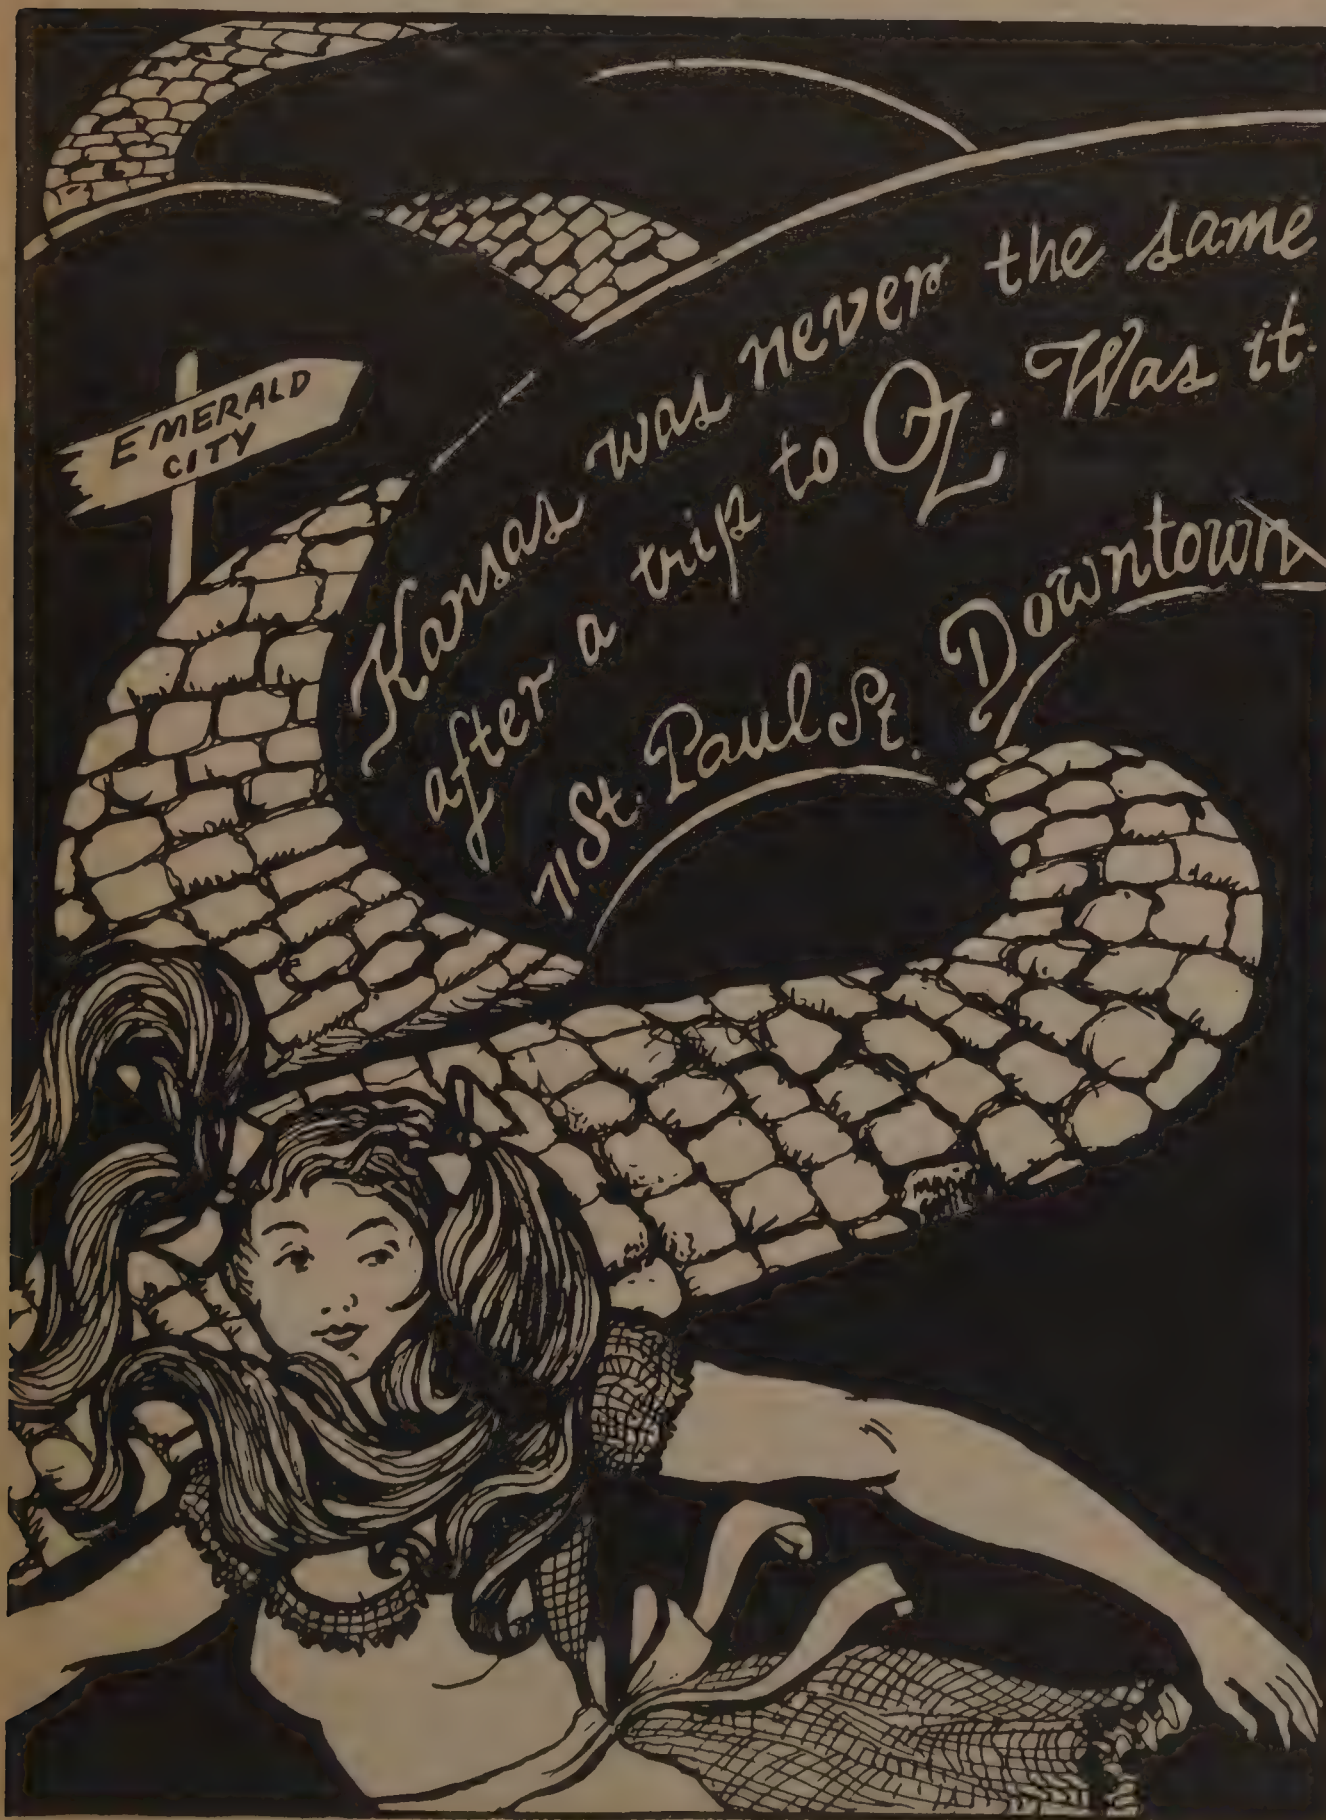 EMERALD
CITY
Kansas was never the same
after a trip to Oz. Was it.
St. Paul St. Downtown